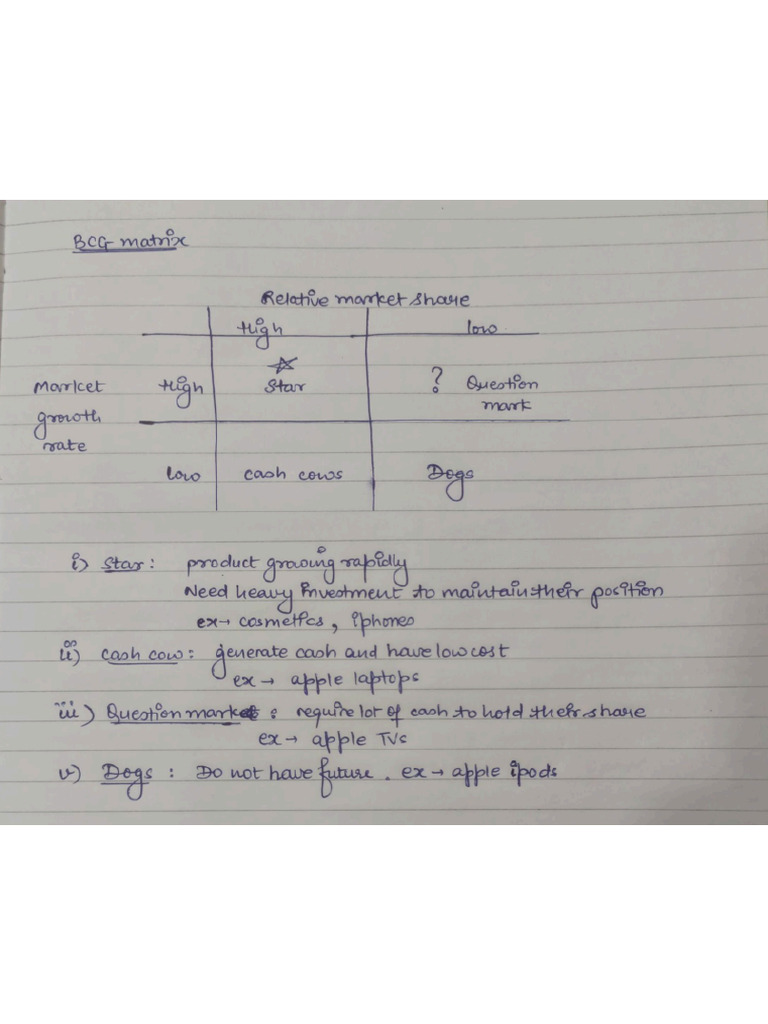 BCG matrix
Relative market share
High low
Market High Star ? Question
growth mark
rate
low cash cows Dogs
i) Star : product growing rapidly
Need heavy investment to maintain their position
ex→ cosmetics, iphones
ii) cash cow : generate cash and have low cost
ex → apple laptops
iii) Question mark : require lot of cash to hold their share
ex → apple TVs
v) Dogs : Do not have future. ex → apple ipods